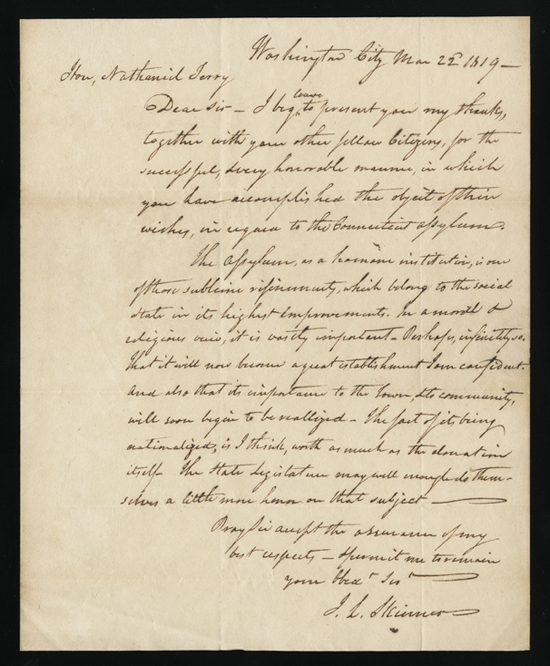 Washington City Mar 22d 1819 —
Hon, Nathaniel Terry
Dear Sir — I beg leave to present you my thanks,
together with your other fellow Citizens, for the
successful, & very honorable manner, in which
you have accomplished the object of their
wishes, in regard to the Connecticut Assylum.
The Assylum, as a humane institution, is one
of those sublime refinements, which belong to the social
state in its highest improvements. In a moral &
religious view, it is vastly important — Perhaps, infinitely so.
That it will now become a great establishment I am confident.
And also that its importance to the town, & to community,
will soon begin to be reallized — The fact of its being
nationalized, is I think, worth as much as the donation
itself — The State Legislature may well enough do them-
selves a little more honor on that subject —
Pray Sir accept the assurance of my
best respects — & permit me to remain
your Obedt Sert
J. L. Skinner